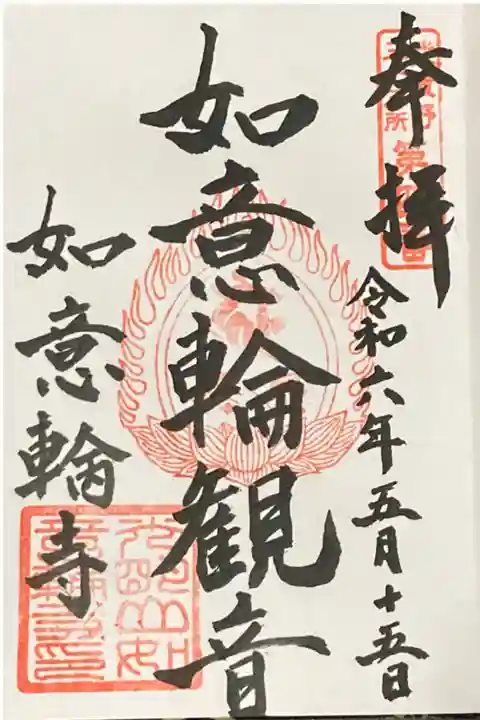 奉拝
令和六年五月十五日
如意輪観音
如意輪寺